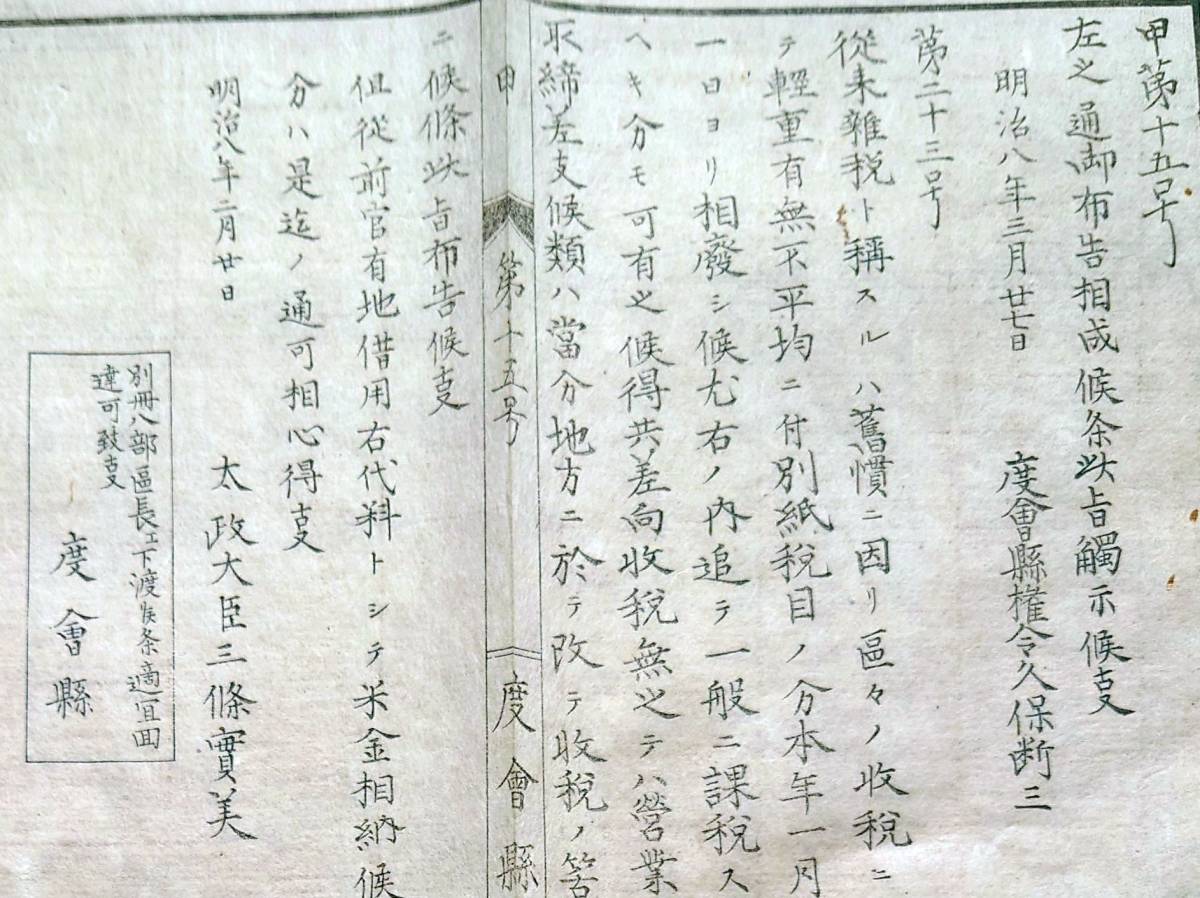 甲第十五号
左之通御布告相成候条此旨觸示候支
明治八年三月廿七日
度會縣権令久保断三
第二十三号
從来雑税ト稱スルハ舊慣ニ因リ區々ノ收税ニ
テ輕重有無不平均ニ付別紙税目ノ分本年一月
一日ヨリ相廢シ候尤右ノ内追テ一般ニ課税ス
ヘキ分モ可有之候得共差向收税無之テハ營業
取締差支候類ハ當分地方ニ於テ改テ收税ノ筈
甲第十五号
度會縣
ニ候條此旨布告候支
但從前官有地借用右代料トシテ米金相納候
分ハ是迄ノ通可相心得支
明治八年二月廿日
太政大臣三條實美
別冊八部區長ェ下渡候条適宜回
達可致支
度會縣